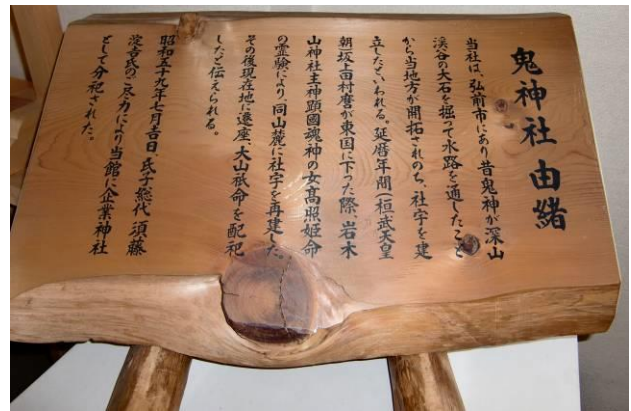 鬼神社 由緒
当社は、弘前市にあり昔鬼神が深山
渓谷の大石を掘って水路を通したこと
から当地方が開拓されのち、社宇を建
立したといわれる。延暦年間(桓武天皇
朝坂上田村麿が東国に下った際、岩木
山神社主神顕國魂神の女髙照姫命
の霊験により、同山麓に社宇を再建した。
その後現在地に遷座、大山祇命を配祀
したと伝えられる。
昭和五十九年七月吉日、氏子総代須藤
淀吉氏のご尽力により当館に企業神社
として分祀された。